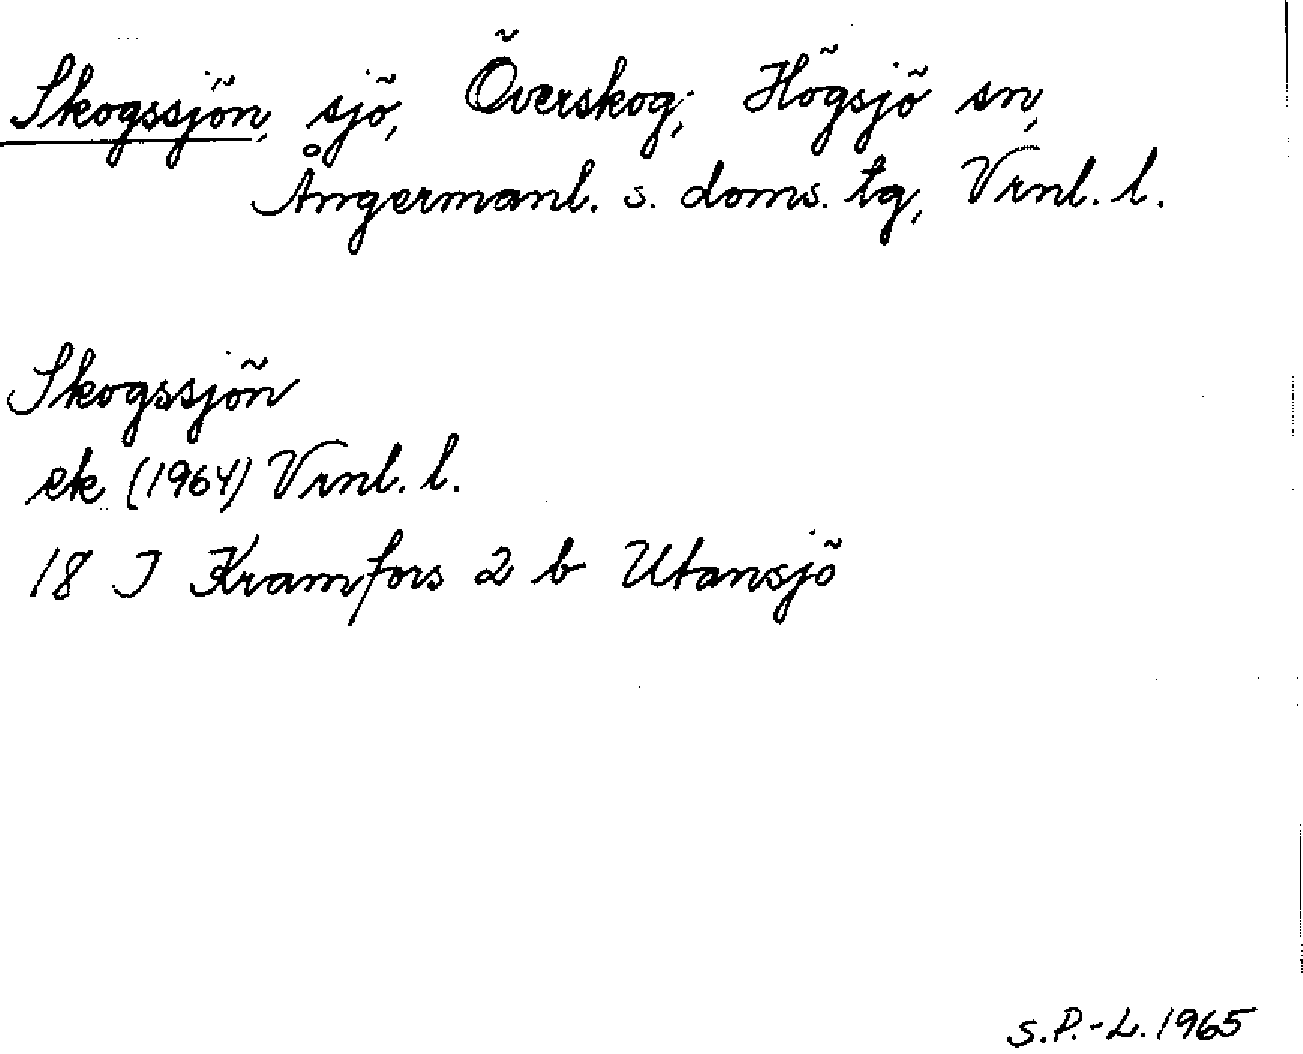 Skogssjön, sjö, Överskog, Högsjö sn,
Ångermanl. s. doms. tg, Vrnl. l.
Skogssjön
ek (1964) Vrnl. l.
18 I Kramfors 2 b Utansjö
S.P.-L. 1965